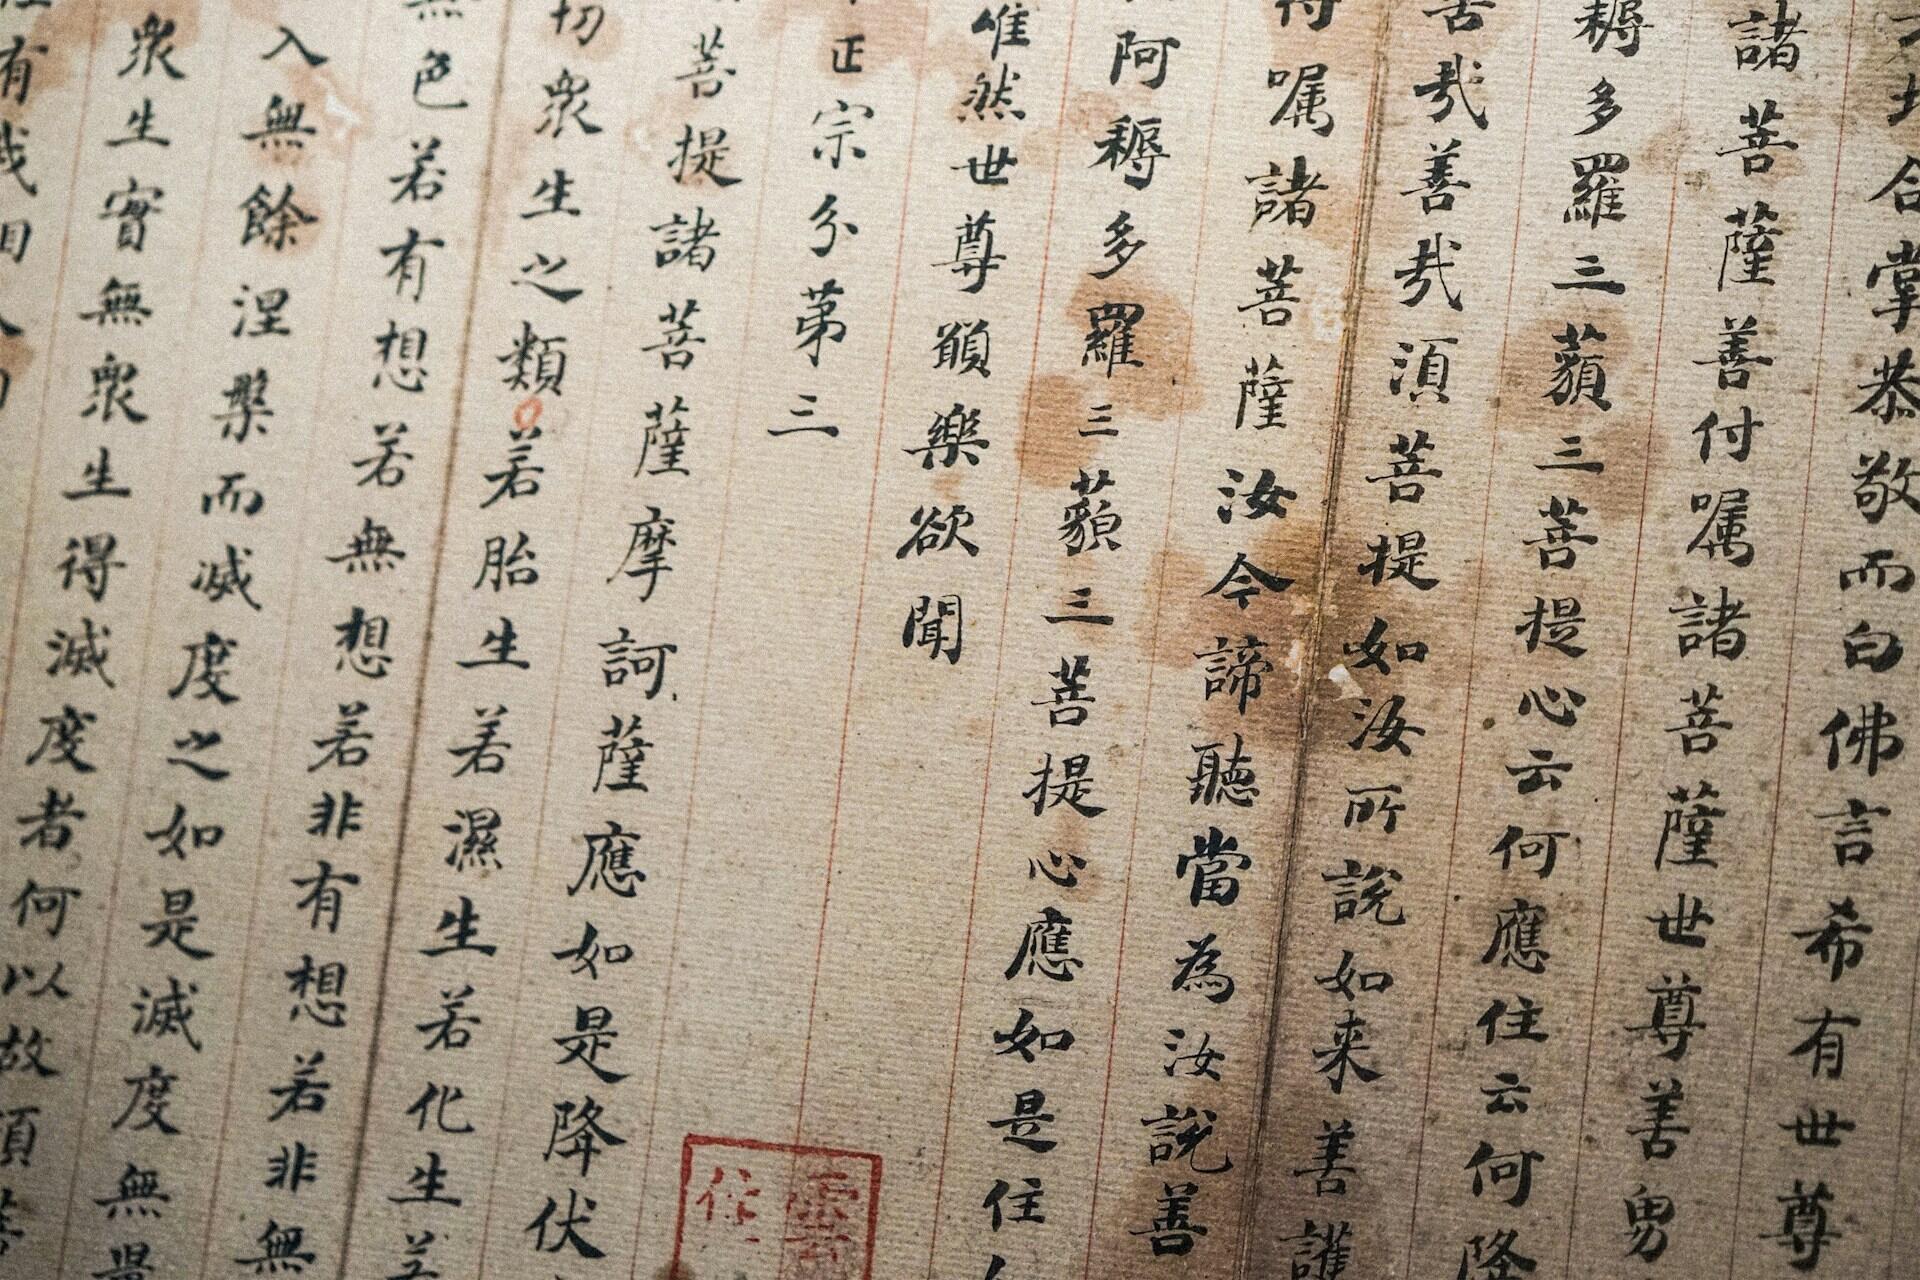 合掌恭敬而白佛言希有世尊
諸菩薩善付嘱諸菩薩世尊善男
耨多羅三藐三菩提心云何應住云何降
哉善哉須菩提如汝所說如来善護
嘱諸菩薩汝今諦聽當為汝說善
阿耨多羅三藐三菩提心應如是住
唯然世尊願樂欲聞
正宗分第三
菩提諸菩薩摩訶薩應如是降伏
切衆生之類若胎生若濕生若化生若
無色若有想若無想若非有想若非無
入無餘涅槃而滅度之如是滅度無量
衆生實無衆生得滅度者何以故須菩
有我相人
雲
住